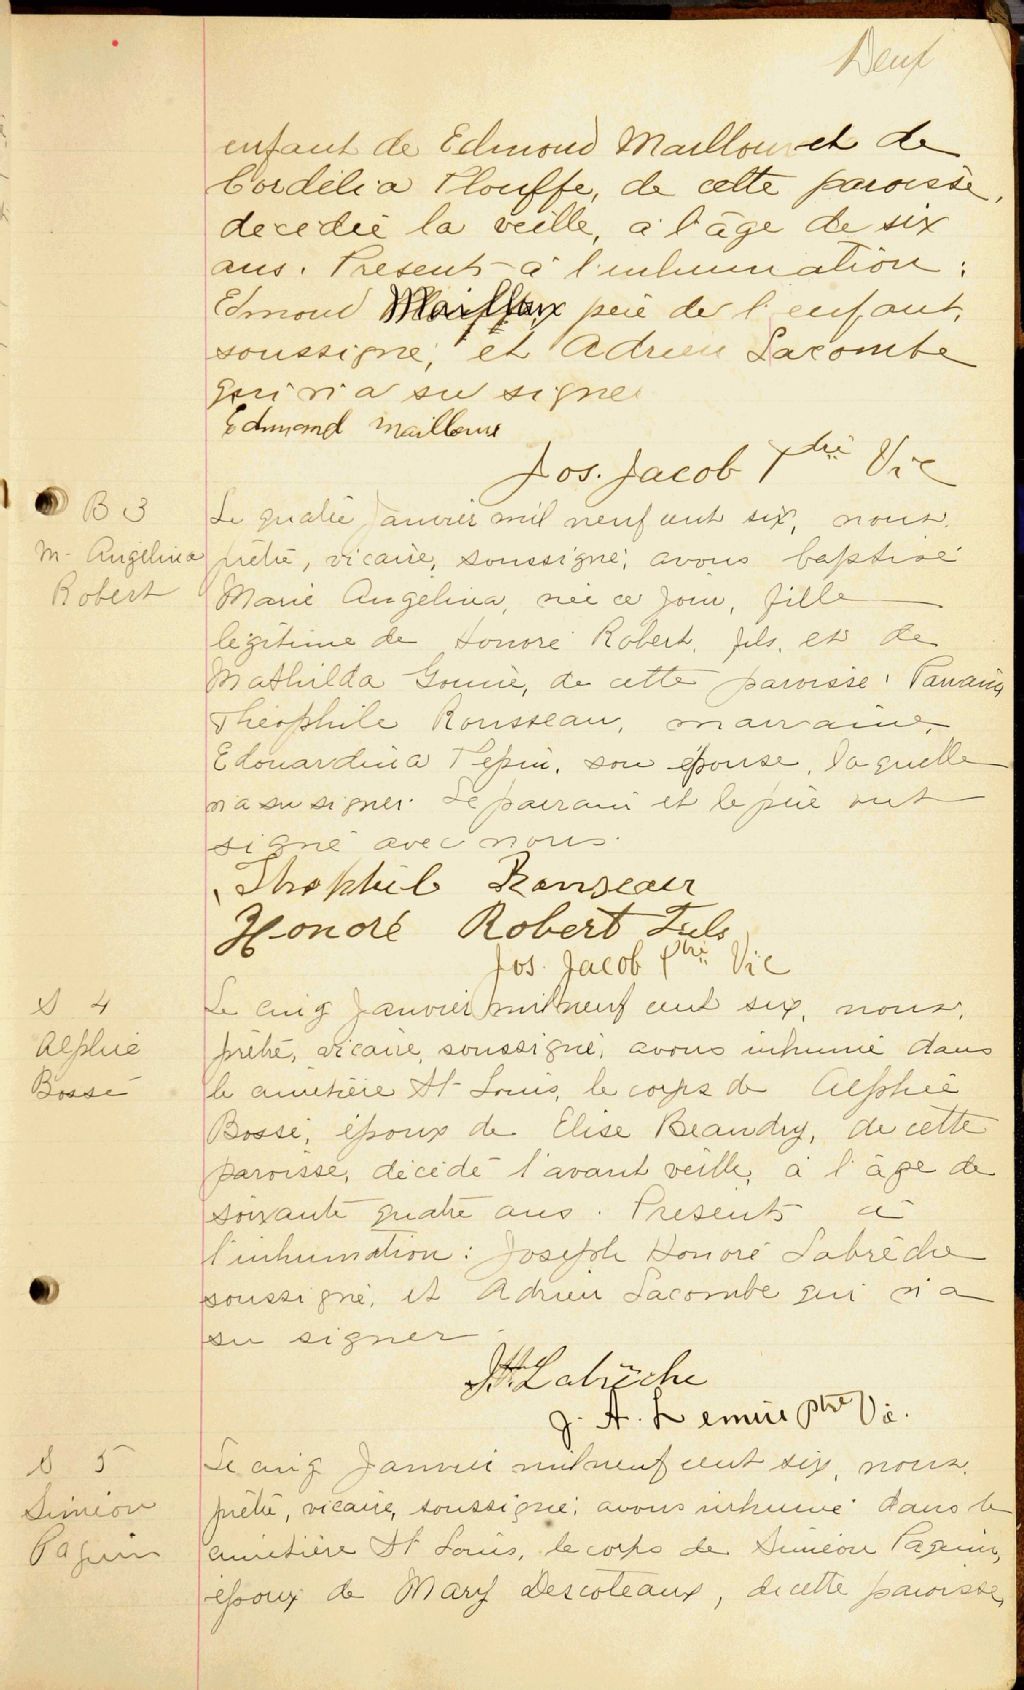 Deux
enfant de Edmond Mailloux et de
Cordélia Plouffe, de cette paroisse,
decédée la veille, à l'âge de six
ans. Présents à l'inhumation :
Edmond Mailloux père de l'enfant,
soussigné, et Adrien Lacombe
qui n'a su signer
Edmond Mailloux
Jos. Jacob Ptre Vic
B 3
M- Angélina
Robert
Le quatre Janvier mil neuf cent six, nous,
prêtre, vicaire, soussigné, avons baptisé
Marie Angélina, née ce jour, fille
légitime de Honoré Robert, fils, et de
Mathilda, de cette paroisse. Parrain,
Théophile Rousseau, marraine,
Edouardina Pépin, son épouse, laquelle
n'a su signer. Le parrain et le père ont
signé avec nous.
Thophile Rouseau
Honoré Robert Fils
Jos. Jacob Ptre Vic
S 4
Alphée
Bossé
Le cinq Janvier mil neuf cent six, nous,
prêtre, vicaire, soussigné, avons inhumé dans
le cimetière St Louis, le corps de Alphée
Bossé, époux de Elise Beaudry, de cette
paroisse, décédé l'avant veille, à l'âge de
soixante quatre ans. Présents à
l'inhumation : Joseph Honoré Labrèche
soussigné, et Adrien Lacombe qui n'a
su signer.
J. H. Labrèche
J. A. Lemire Ptre Vic.
S 5
Siméon
Paquin
Le cinq Janvier mil neuf cent six, nous,
prêtre, vicaire, soussigné, avons inhumé dans le
cimetière St Louis, le corps de Siméon Paquin,
époux de Mary Descoteaux, de cette paroisse,